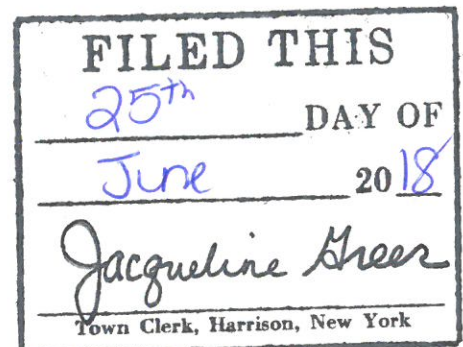 FILED THIS
25th DAY OF
June 2018
Jacqueline Greer
Town Clerk, Harrison, New York